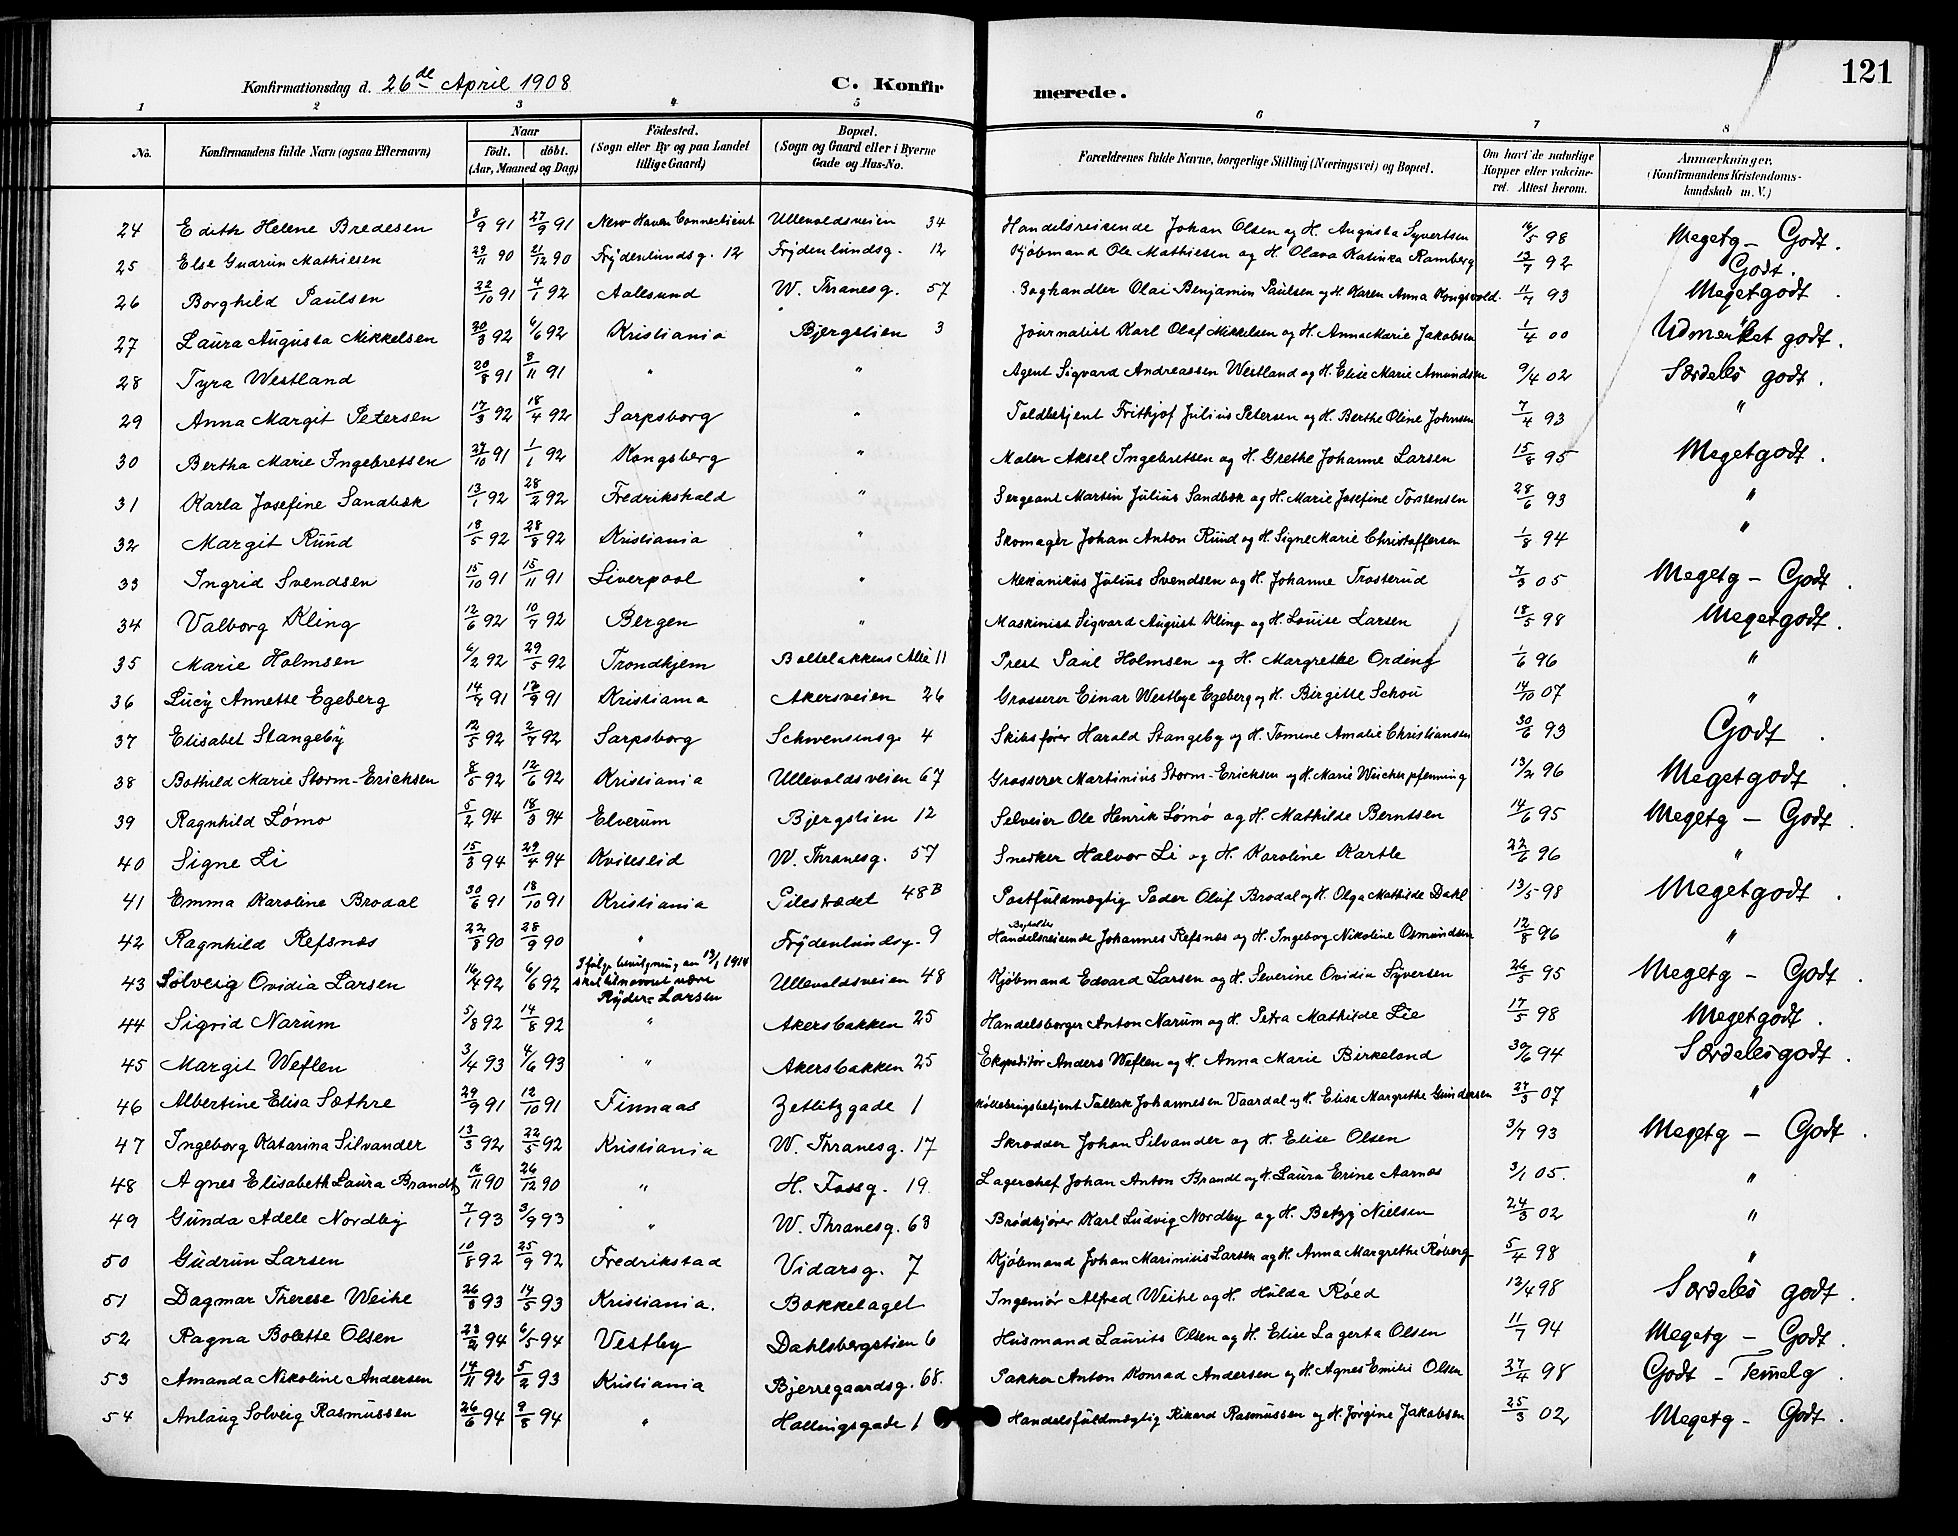 121
Konfirmationsdag d. 26de April 1908 C. Konfirmerede.
1 2 3 4 5 6 7 8
No. Konfirmandens fulde Navn (ogsaa Efternavn) Naar født. døbt. (Aar, Maaned og Dag) Fødested. (Sogn eller By og paa Landet tillige Gaard) Bopæl. (Sogn og Gaard eller i Byerne Gade og Hus-No. Forældrenes fulde Navne, borgerlige Stilling (Næringsvei) og Bopæl. Om havt de naturlige Kopper eller vakcineret. Attest herom. Anmærkninger. (Konfirmandens Kristendomskundskab m. V.)
24 Edith Helene Bredesen 8/9 91 27/9 91 New Haven Connecticut Ullevoldsveien 34 Handelsreisende Johan Olsen og H. Augusta Syvertsen 16/5 98 Megetg - Godt.
25 Else Gudrun Mathiesen 29/11 90 21/12 90 Frydenlundsg. 12 Frydenlundsg. 12 Kjøbmand Ole Mathiesen og H. Olava Katinka Ramberg 13/7 92 Godt.
26 Borghild Paulsen 22/10 91 4/1 92 Aalesund W. Thranesg. 57 Boghandler Olai Benjamin Paulsen og H. Karen Anna Kongsvold. 11/4 93 Megetgodt.
27 Laura Augusta Mikkelsen 30/3 92 6/6 92 Kristiania Bjergstien 3 Journalist Karl Olaf Mikkelsen og H. Anna Marie Jakobsen 1/4 00 Udmerket godt.
28 Tyra Westland 20/8 91 8/11 91 " " Agent Sigvard Andreassen Westland og H. Elise Marie Amundsen 9/4 02 Særdeles godt.
29 Anna Margit Petersen 17/3 92 18/4 92 Sarpsborg " Toldbetjent Frithjof Julius Petersen og H. Berthe Oline Johnsen 7/4 93 "
30 Bertha Marie Ingebretsen 27/10 91 1/1 92 Kongsberg " Maler Aksel Ingebretsen og H. Grethe Johanne Larsen 15/8 95 Megetgodt.
31 Karla Josefine Sandbæk 13/1 92 28/2 92 Fredrikshald " Sergeant Martin Julius Sandbæk og H. Marie Josefine Torstensen 28/6 93 "
32 Margit Ruud 18/5 92 28/8 92 Kristiania " Skomager Johan Anton Ruud og H. Signe Marie Christoffersen 1/8 94 "
33 Ingrid Svendsen 15/10 91 15/11 91 Liverpool " Mekanikus Julius Svendsen og H. Johanne Trosterud 7/3 05 Megetg - Godt.
34 Valborg Kling 12/6 92 10/7 92 Bergen " Maskinist Sigvard August Kling og H. Louise Larsen 18/5 98 Megetgodt.
35 Marie Holmsen 6/2 92 29/5 92 Trondhjem Bolteløkkens Alle 11 Prest Paul Holmsen og H. Margrethe Ording 1/6 96 "
36 Lucy Annette Egeberg 14/7 91 12/9 91 Kristiania Akersveien 26 Grosserer Einar Westbye Egeberg og H. Birgitte Schou 14/10 07 "
37 Elisabet Stangeby 12/5 92 2/7 92 Sarpsborg Schwensensg. 4 Skibsfører Harald Stangeby og H. Tomine Amalie Christiansen 30/6 93 Godt.
38 Bothild Marie Storm-Erichsen 8/5 92 12/6 92 Kristiania Ullevoldsveien 67 Grosserer Martinius Storm-Erichsen og H. Marie Wücherpfenning 13/2 96 Megetgodt.
39 Ragnhild Lømo 5/2 94 18/3 94 Elverum Bjergstien 12 Selveier Ole Henrik Lømo og H. Mathilde Berntsen 14/6 95 Megetg - Godt.
40 Signe Li 15/3 94 29/4 94 Kviteseid W. Thranesg. 57 Snedker Halvor Li og H. Karoline Kartle 22/6 96 "
41 Emma Karoline Brodal 30/6 91 18/10 91 Kristiania Pilestrædet 48B Postfuldmægtig Peder Oluf Brodal og H. Olga Mathilde Dahl 13/5 98 Megetgodt.
42 Ragnhild Refsnæs 22/8 90 28/9 90 " Frydenlundsg. 9 Handelsreisende Johannes Refsnæs og H. Ingeborg Nikoline Osmundsen 12/8 96 "
43 Solveig Ovidia Larsen 16/4 92 6/6 92 Ifølge bevilgning av 13/1 1914 skal tilnavnet være Ryder-Larsen Ullevoldsveien 48 Kjøbmand Edvard Larsen og H. Severine Ovidia Syversen 26/5 95 Megetg - Godt.
44 Sigrid Narum 5/8 92 14/8 92 " Akersbakken 25 Handelsborger Anton Narum og H. Petra Mathilde Lie 17/5 98 Megetgodt.
45 Margit Weflen 3/4 93 4/6 93 " Akersbakken 25 Ekspeditør Anders Weflen og H. Anna Marie Birkeland 30/6 94 Særdelesgodt.
46 Albertine Elisa Sæthre 29/9 91 12/10 91 Finnaas Zetlitzgade 1 Tallak Johannesen Vaardal og H. Elisa Margrethe Gundersen 27/3 07 "
47 Ingeborg Katarina Silvander 13/3 92 22/5 92 Kristiania W. Thranesg. 17 Skrædder Johan Silvander og H. Elise Olsen 3/7 93 Megetg - Godt.
48 Agnes Elisabeth Laura Brandt 16/11 90 26/12 90 " H. Fossg. 19. Lagerchef Johan Anton Brandt og H. Laura Erine Aarnæs 3/1 05. "
49 Gunda Adele Nordby 7/1 93 3/9 93 " W. Thranesg. 63 Brødkjører Karl Ludvig Nordby og H. Betzy Nielsen 24/3 02 "
50 Gudrun Larsen 10/8 92 25/9 92 Fredrikstad Vidarsg. 7 Kjøbmand Johan Marinius Larsen og H. Anna Margrethe Roberg 5/4 98 "
51 Dagmar Therese Weihe 26/3 93 14/5 93 Kristiania. Bakkelaget Ingeniør Alfred Weihe og H. Hulda Røed 13/4 98 Særdeles godt.
52 Ragna Bolette Olsen 23/2 94 6/5 94 Vestby Dahlsbergstien 6 Husmand Laurits Olsen og H. Elise Lagerta Olsen 11/7 94 Megetg - Godt.
53 Amanda Nikoline Andersen 14/11 92 5/2 93 Kristiania Bjerregaardsg. 68. Pakker Anton Konrad Andersen og H. Agnes Emilie Olsen 27/4 98 Godt - Temelg.
54 Anlaug Solveig Rasmussen 26/6 94 9/8 94 " Hallingsgade 1 Handelsfuldmægtig Rikard Rasmussen og H. Jørgine Jakobsen 25/3 02 Megetg - Godt.